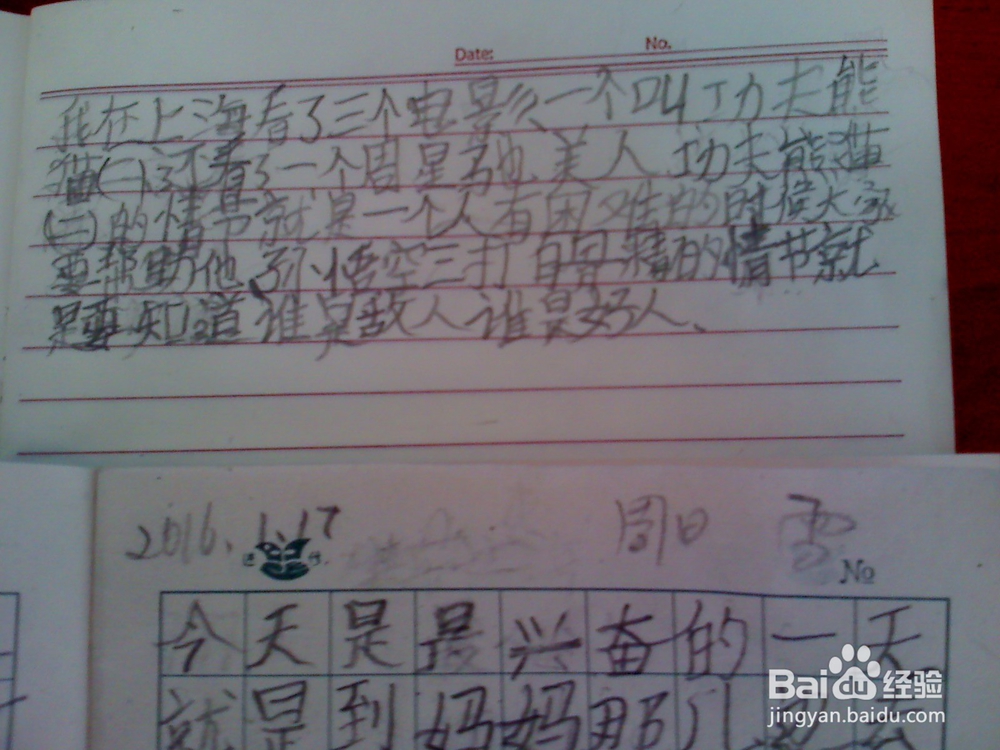 Date: No.
我在上海看了三个电影、一个叫功夫能
猫(二)、还看了一个周星驰美人 功夫能猫
(二)的情节就是一个人有困难的时候大家
要帮助他、孙悟空三打白骨精的情节就
是要知道谁是敌人谁是好人、
2016.1.17 周日 雪
No
今天是最兴奋的一天
就是到妈妈那儿去
Baidu经验
jingyan.baidu.com